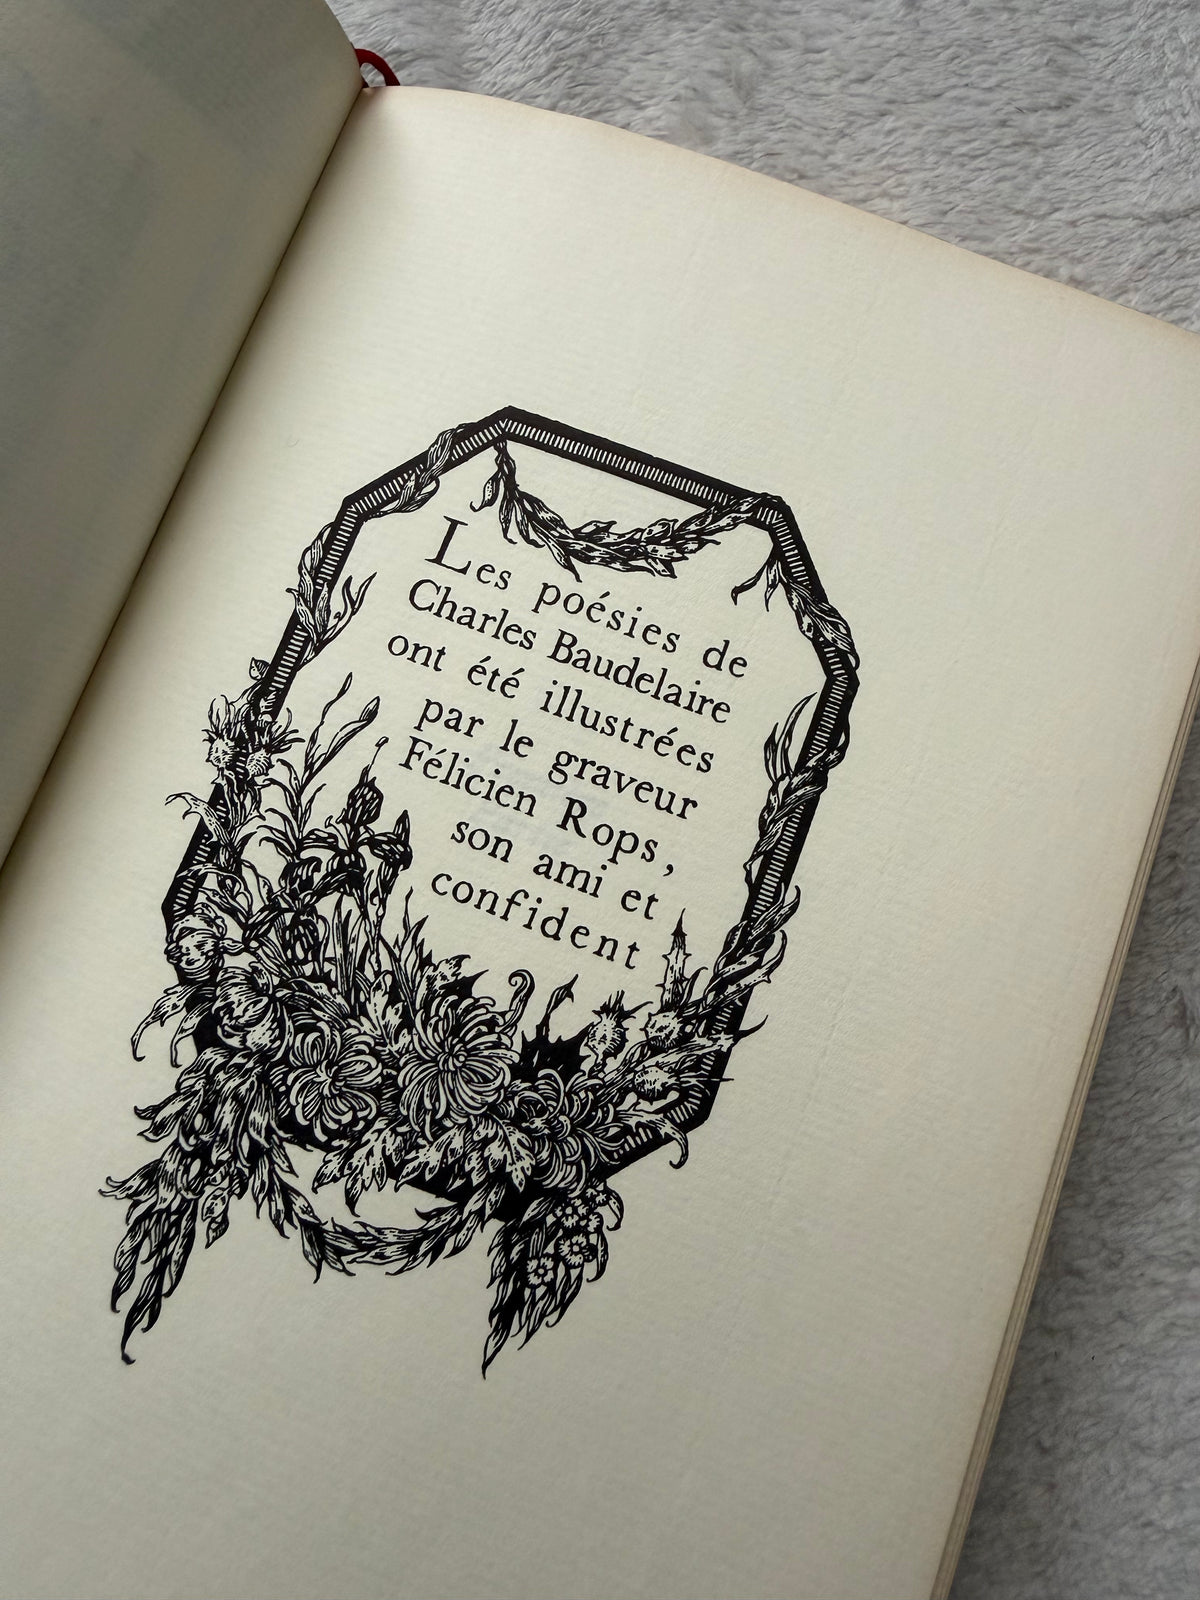 Les poésies de
Charles Baudelaire
ont été illustrées
par le graveur
Félicien Rops,
son ami et
confident